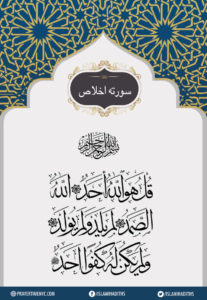 سورته اخلاص
بسم الله الرحمن الرحيم
قُلْ هُوَ اللَّهُ أَحَدٌ اللَّهُ
الصَّمَدُ لَمْ يَلِدْ وَلَمْ يُولَدْ
وَلَمْ يَكُن لَّهُ كُفُوًا أَحَدٌ
PRAYERTIMENYC.COM /ISLAMIHADITHS /ISLAMIHADITHS